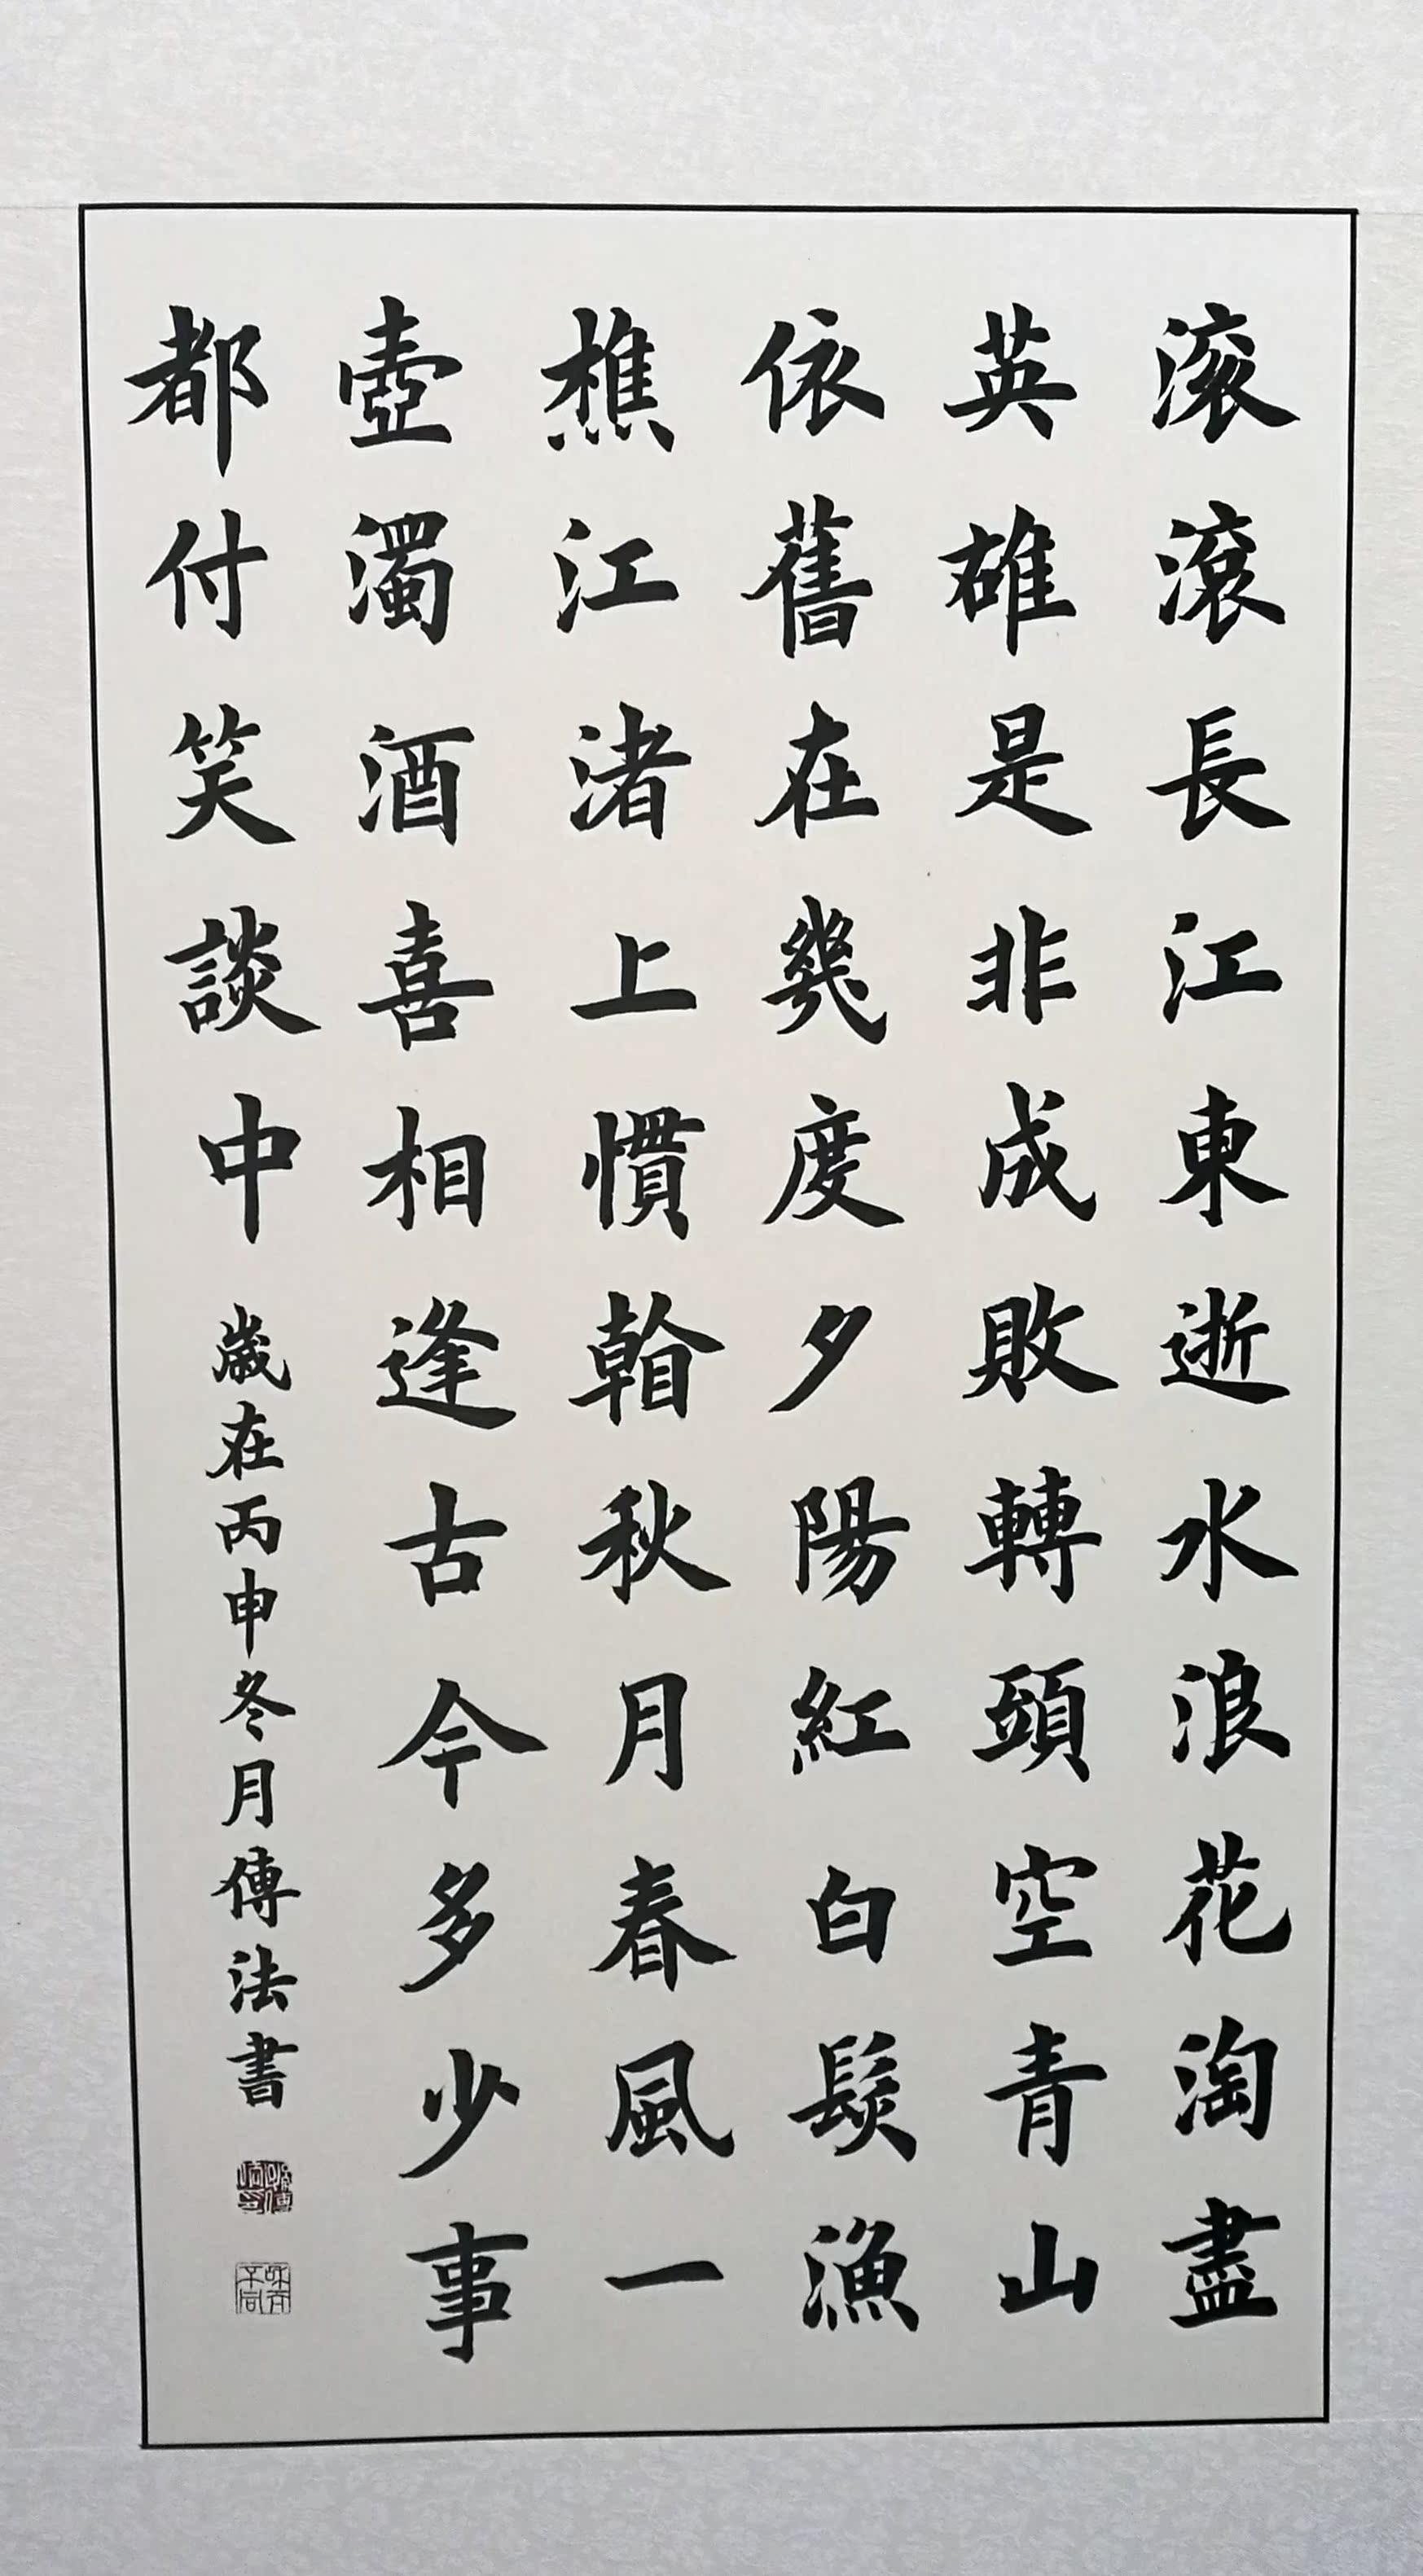 滚滾長江東逝水浪花淘盡
英雄是非成敗轉頭空青山
依舊在幾度夕陽紅白髮漁
樵江渚上慣看秋月春風一
壺濁酒喜相逢古今多少事
都付笑談中
歲在丙申冬月傳法書